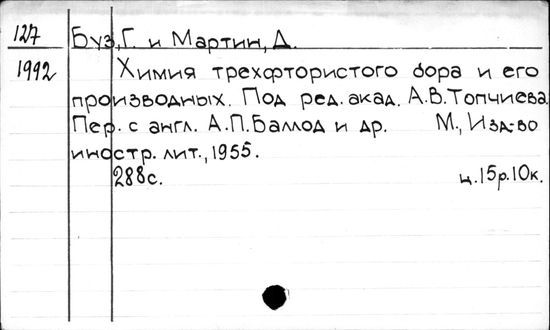 127 Буз, Г. и Мартин, Д.
1992 Химия трехфтористого бора и его
производных. Под ред. акад. А.В.Топчиева
Пер. с англ. А.П.Баллод и др. М., Изд-во
иностр. лит., 1955.
288с. ц.15р.10к.